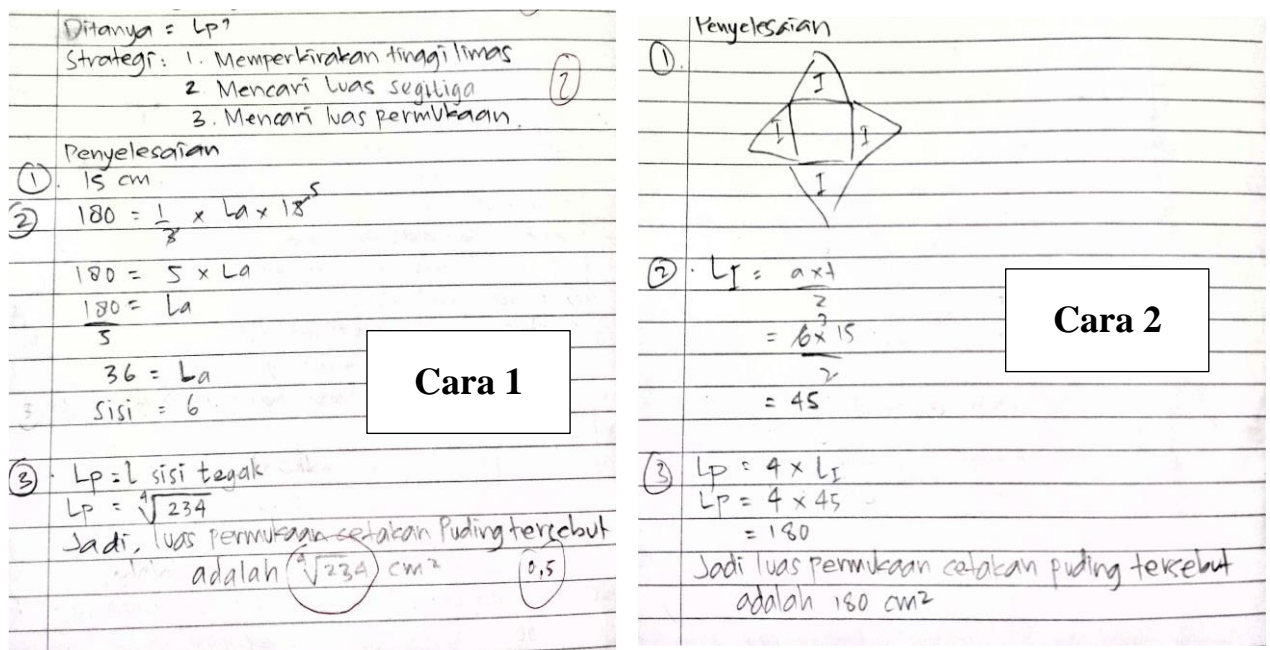 Ditanya = Lp?
Strategi: 1. Memperkirakan tinggi limas
2. Mencari luas segitiga
2
3. Mencari luas permukaan.
Penyelesaian
1. 15 cm
2 180 = 1/3 x La x 15 5
180 = 5 x La
180/5 = La
36 = La
Sisi = 6
Cara 1
3. Lp = l sisi tegak
Lp = ⁴√234
Jadi, luas permukaan cetakan Puding tersebut
adalah ⁴√234 cm²
0,5
Penyelesaian
1.
I
I
I
I
2. LI = a x t / 2
= 6 3 x 15 / 2
= 45
Cara 2
3 Lp = 4 x LI
Lp = 4 x 45
= 180
Jadi luas permukaan cetakan puding tersebut
adalah 180 cm²